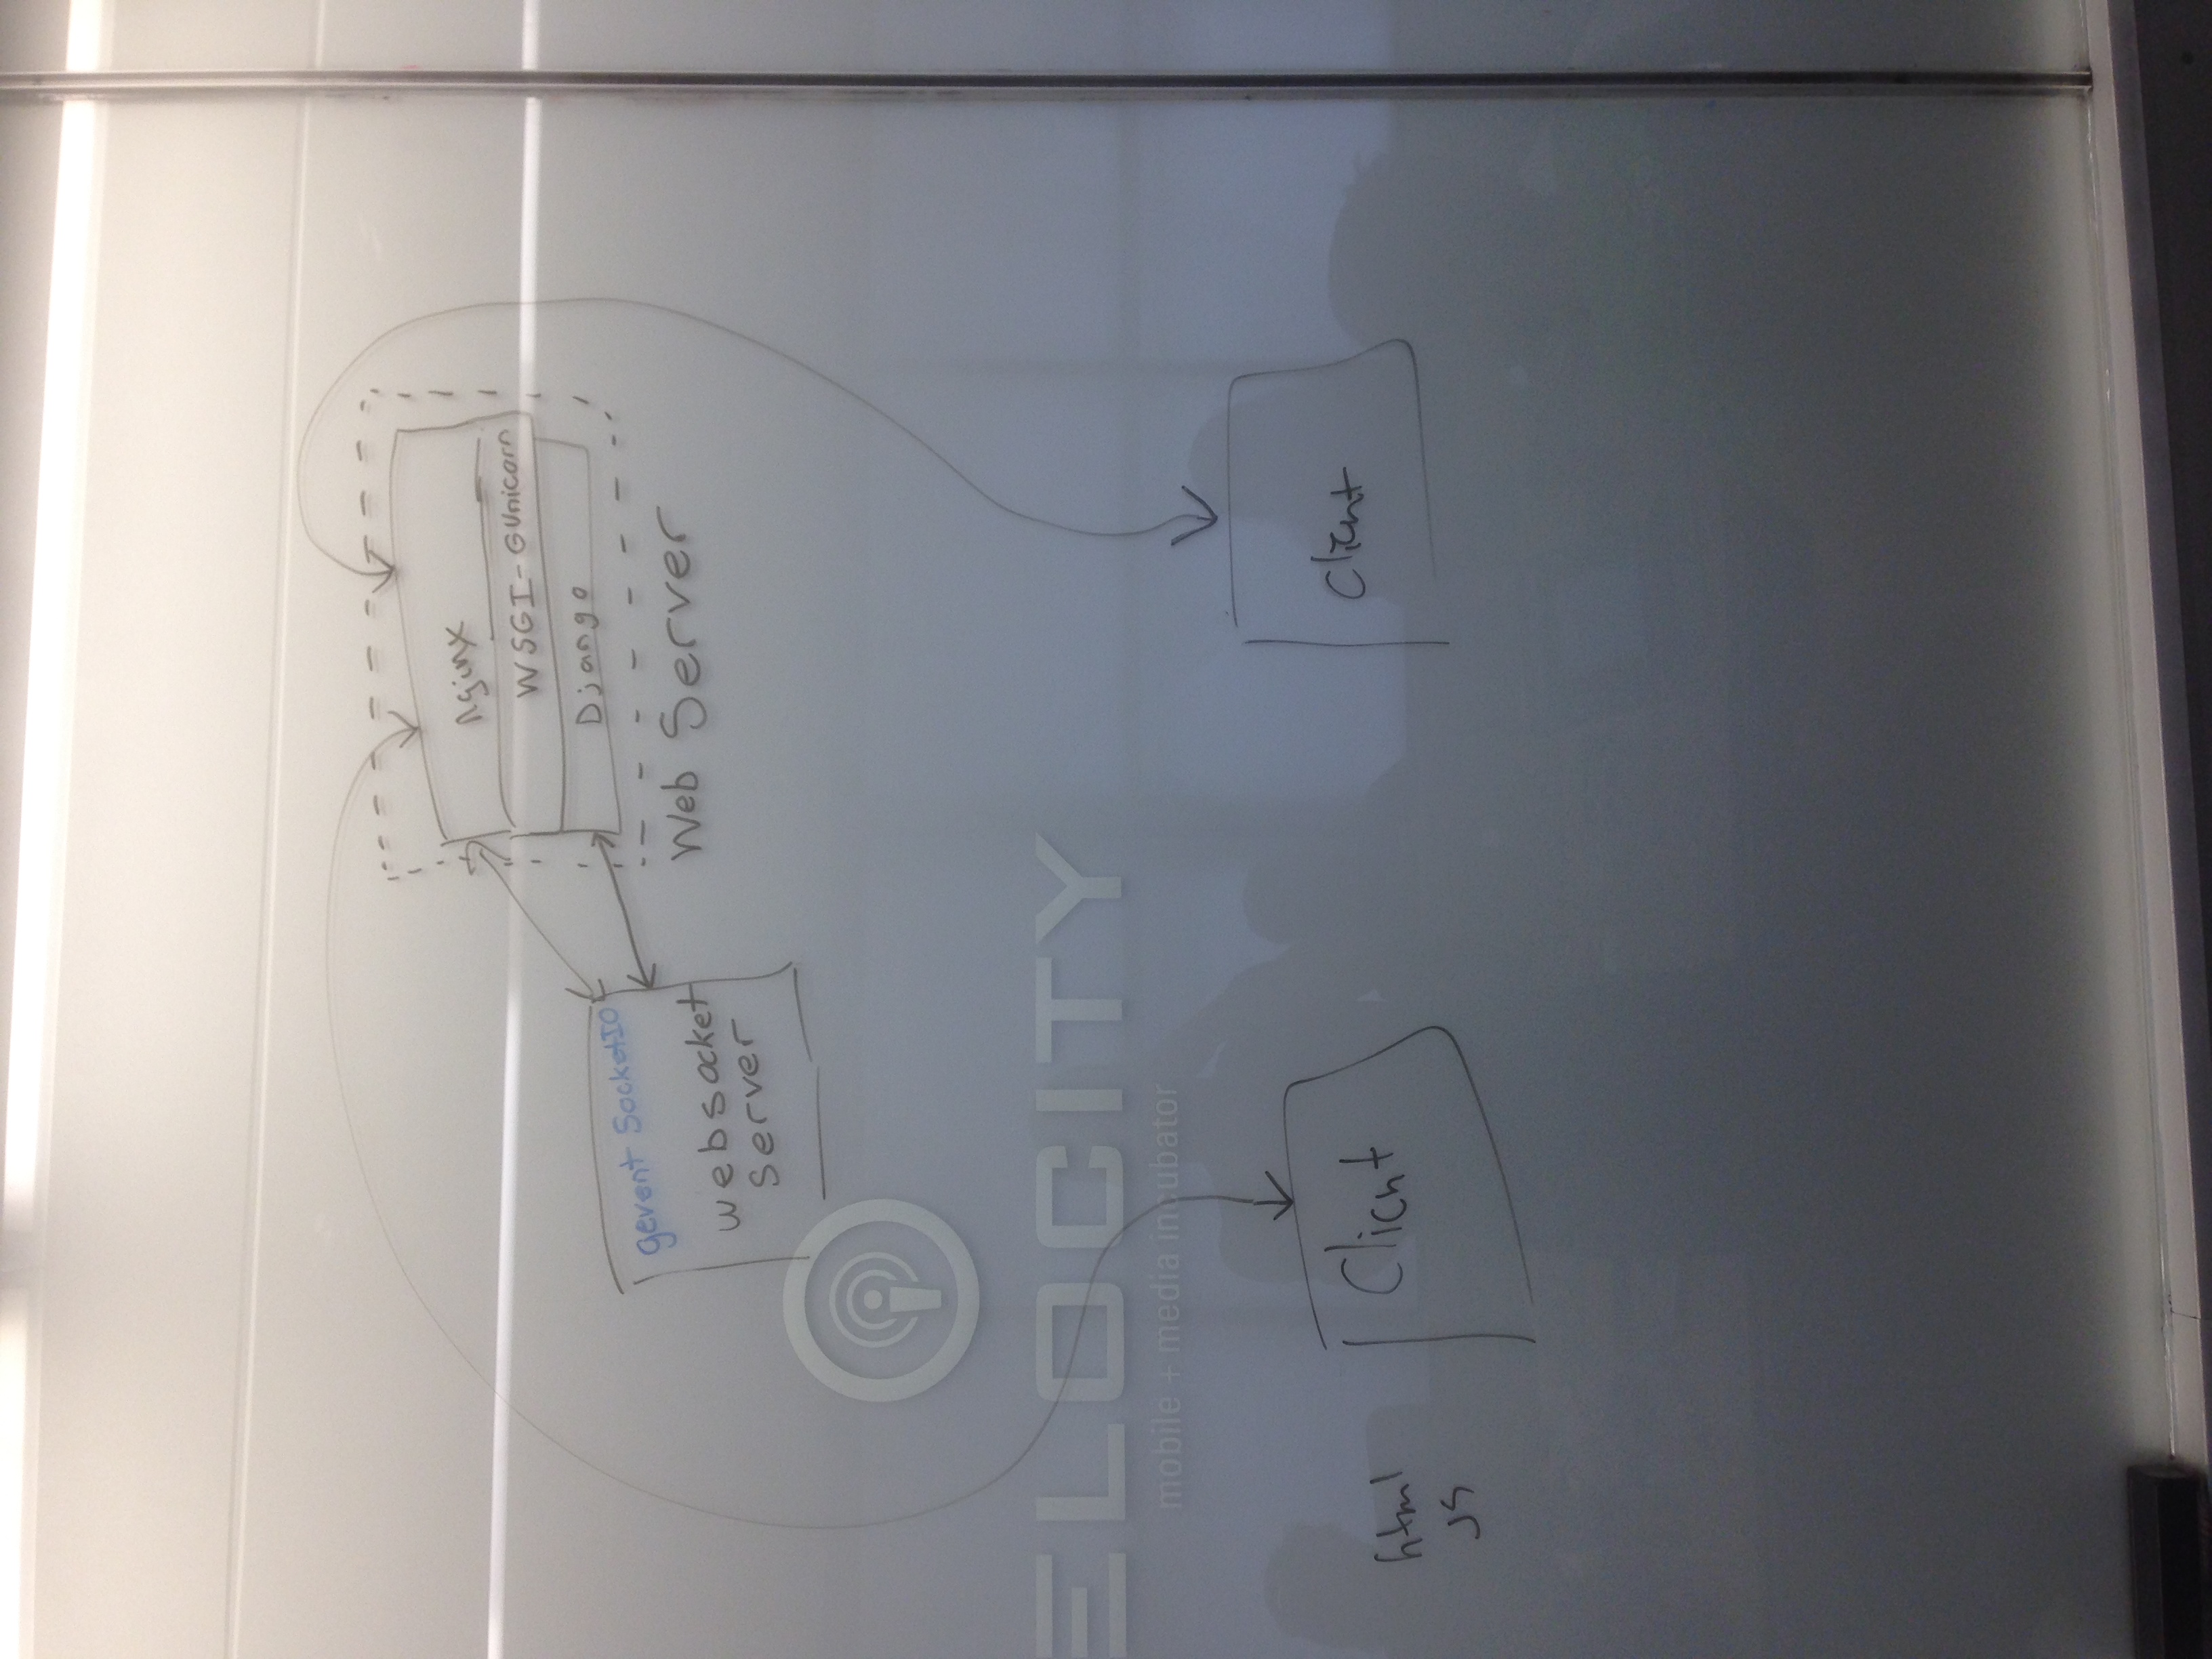 nginx
WSGI-GUnicorn
Django
Web Server
gevent SocketIO
websocket
Server
ELOCITY
mobile + media incubator
html
JS
Client
Client